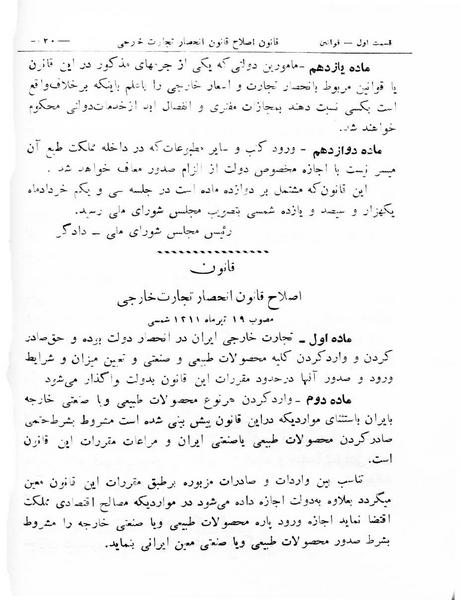 قسمت اول — قوانین قانون اصلاح قانون انحصار تجارت خارجی —۲۰—
ماده یازدهم - مامورین دولتی که یکی از جرمهای مذکور در این قانون
یا قوانین مربوط بانحصار تجارت و اسعار خارجی را باعلم باینکه برخلاف واقع
است بکسی نسبت دهند بمجازات مفتری و انفصال ابد از خدمات دولتی محکوم
خواهند شد.
ماده دوازدهم - ورود کتب و سایر مطبوعات که در داخله مملکت طبع آن
میسر نیست با اجازه مخصوص دولت از الزام صدور معاف خواهد شد.
این قانون که مشتمل بر دوازده ماده است در جلسه سی و یکم خردادماه
یکهزار و سیصد و یازده شمسی بتصویب مجلس شورای ملی رسید.
رئیس مجلس شورای ملی - دادگر
قانون
اصلاح قانون انحصار تجارت خارجی
مصوب ۱۹ تیرماه ۱۳۱۱ شمسی
ماده اول - تجارت خارجی ایران در انحصار دولت بوده و حق صادر
کردن و وارد کردن کلیه محصولات طبیعی و صنعتی و تعیین میزان و شرایط
ورود و صدور آنها در حدود مقررات این قانون بدولت واگذار می‌شود.
ماده دوم - وارد کردن هر نوع محصولات طبیعی و یا صنعتی خارجه
بایران باستثنای مواردیکه در این قانون پیش بینی شده است مشروط بشرط حتمی
صادر کردن محصولات طبیعی یا صنعتی ایران و مراعات مقررات این قانون
است.
تناسب بین واردات و صادرات مزبوره بر طبق مقررات این قانون معین
میگردد بعلاوه به دولت اجازه داده می‌شود در مواردیکه مصالح اقتصادی مملکت
اقتضا نماید اجازه ورود پاره محصولات طبیعی و یا صنعتی خارجه را مشروط
بشرط صدور محصولات طبیعی و یا صنعتی معین ایرانی بنماید.